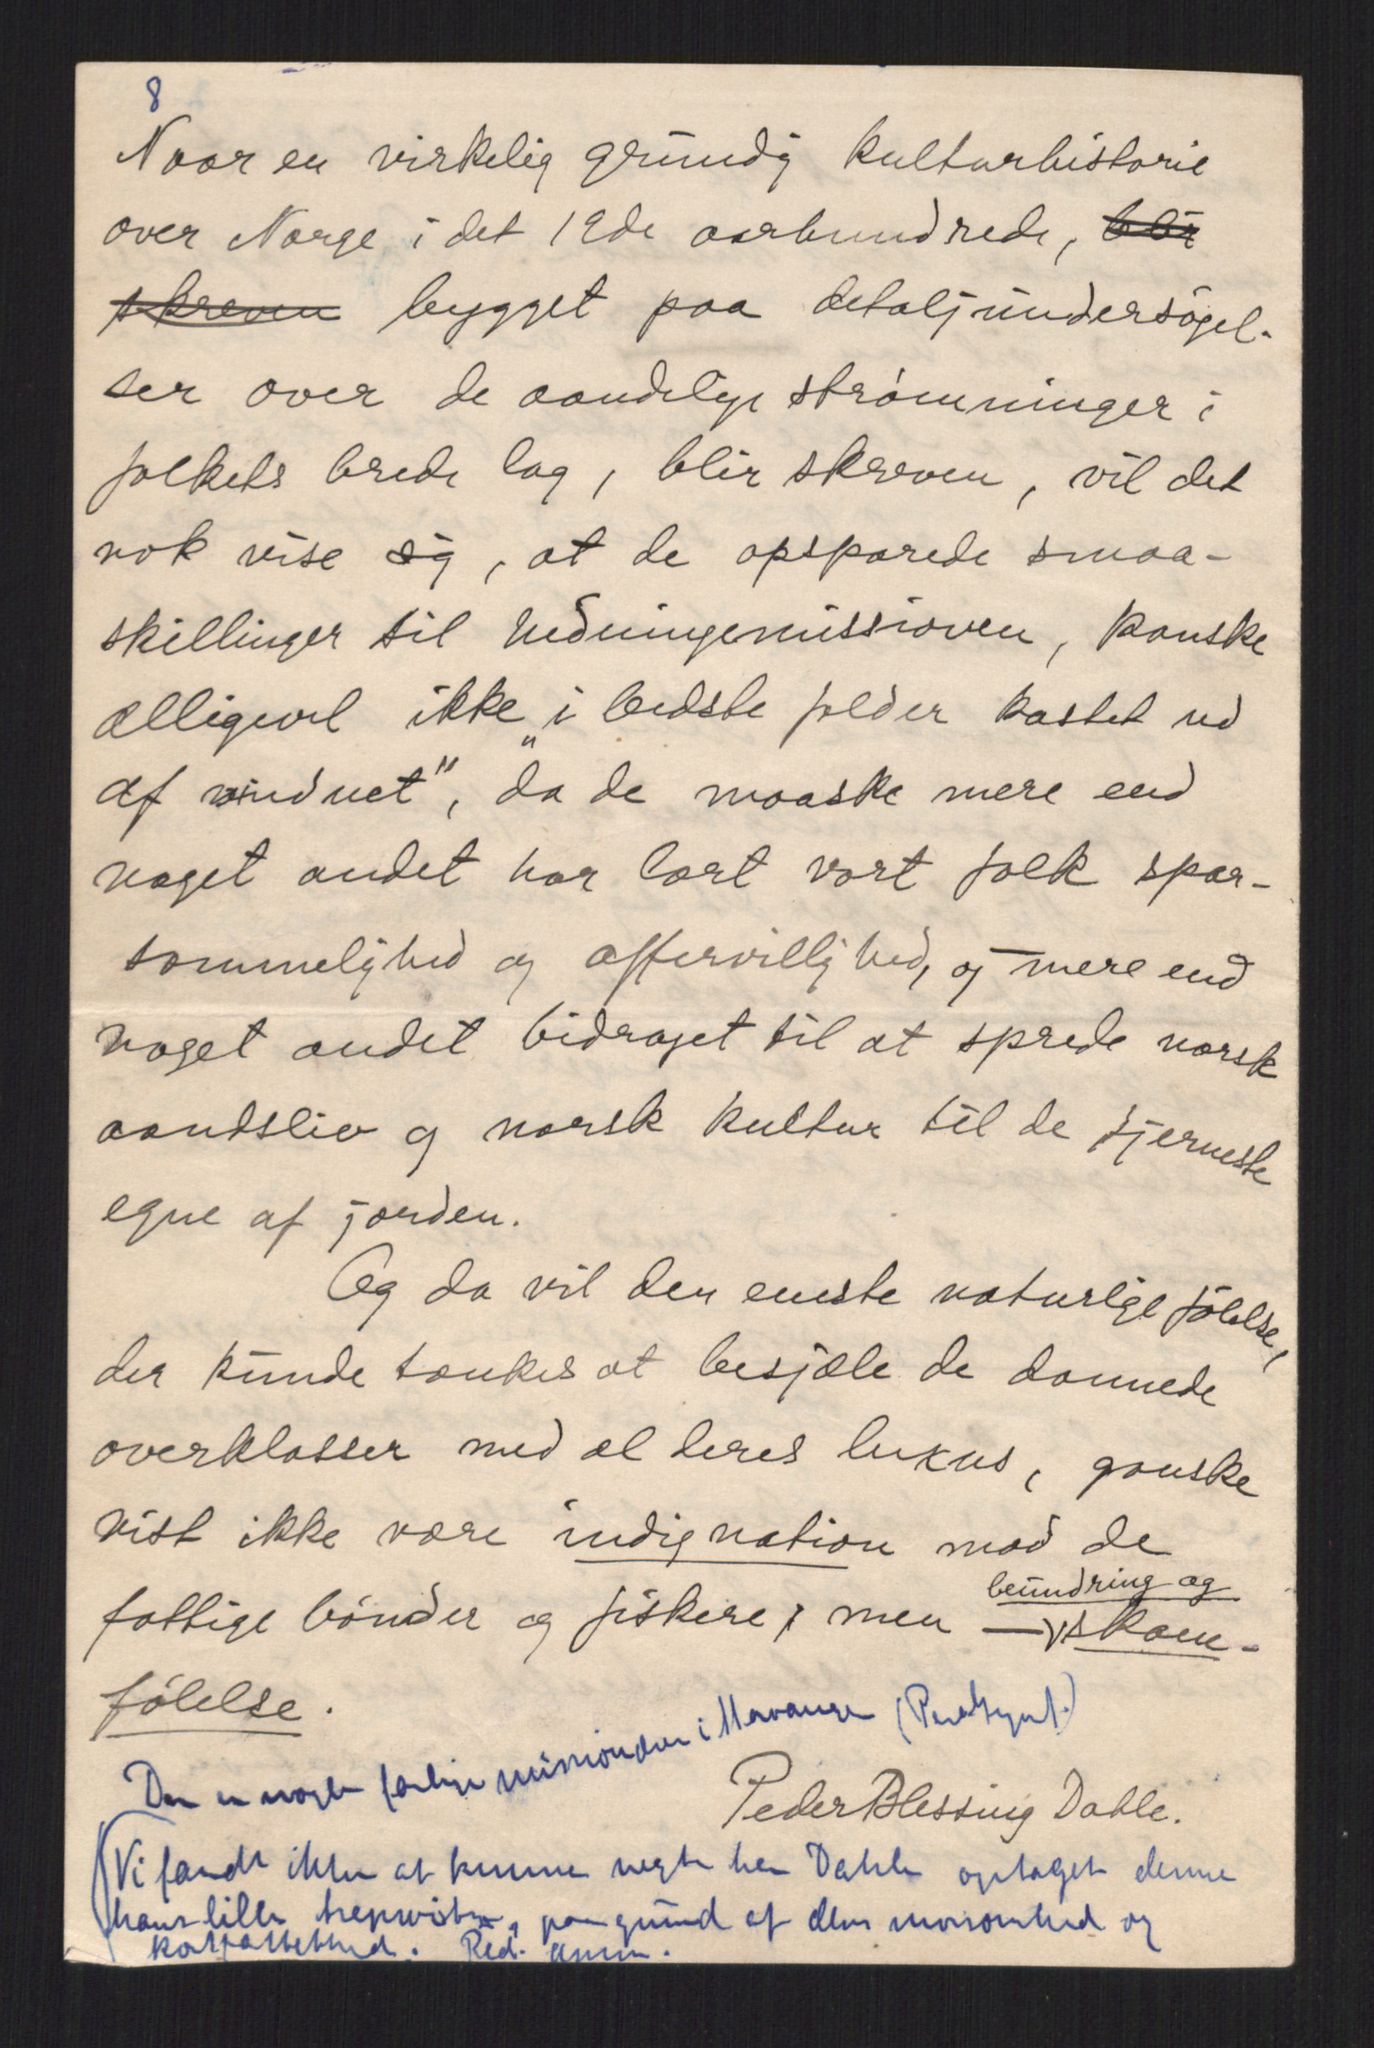 8
Naar en virkelig grundig kulturhistorie
over Norge i det 19de aarhundrede, blir
skreven bygget paa detaljundersøgel-
ser over de aandelige strømninger i
folkets brede lag, blir skreven, vil det
nok vise sig, at de opsparede smaa-
skillinger til hedningemissionen, kanske
alligevel ikke „i bedste folder kastet ud
af vinduet", da de maaske mere end
noget andet har lært vort folk spar-
sommelighed og offervillighed, og mere end
noget andet bidraget til at sprede norsk
aandsliv og norsk kultur til de fjerneste
egne af jorden.
Og da vil den eneste naturlige følelse,
der kunde tænkes at besjæle de dannede
overklasser med al deres luxus, ganske
vist ikke være indignation mod de
beundring og
fattige bønder og fiskere, men — skam-
følelse.
Der er nogle farlige i Stavanger
Peder Blessing Dahle.
(Vi fandt ikke at kunne negte hr Dahle optaget denne
hans lille paa grund af dens morsomhed og
kortfattethed. Red. anm.